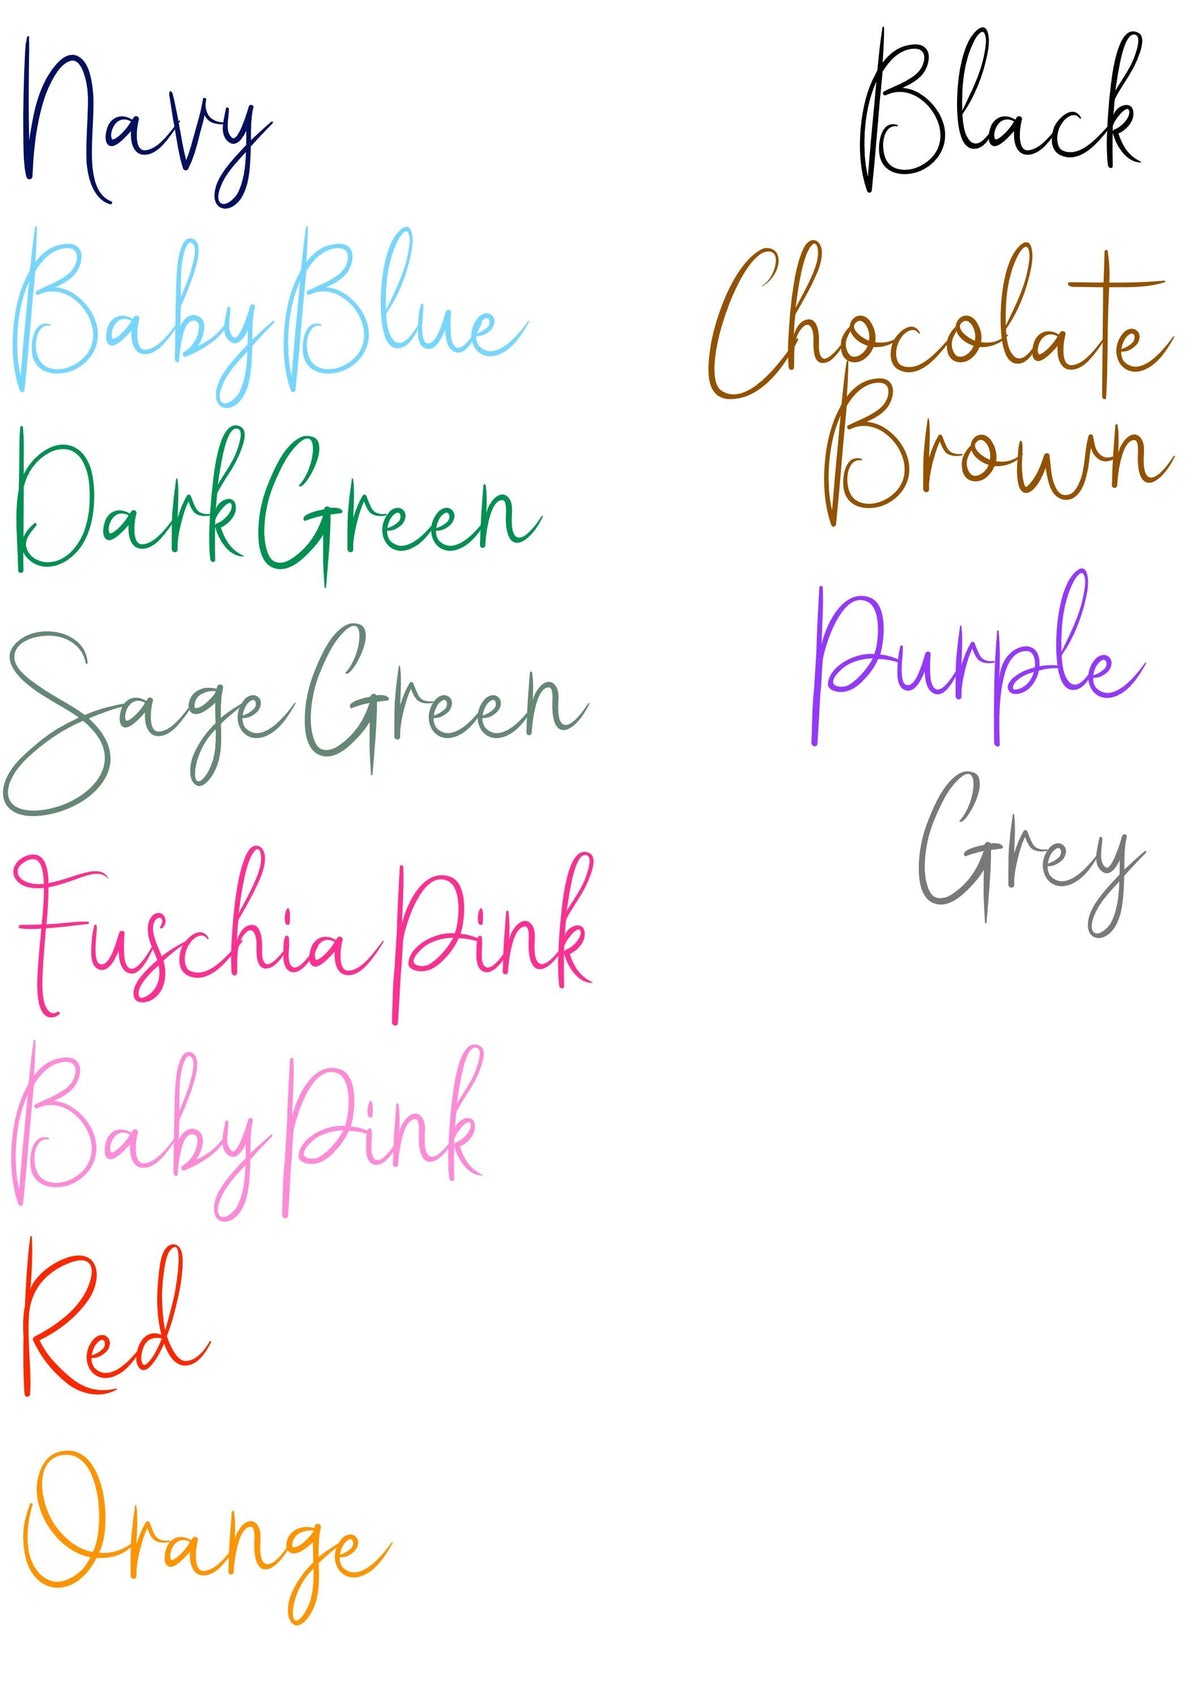 Navy
Baby Blue
Dark Green
Sage Green
Fuschia Pink
Baby Pink
Red
Orange
Black
Chocolate
Brown
Purple
Grey